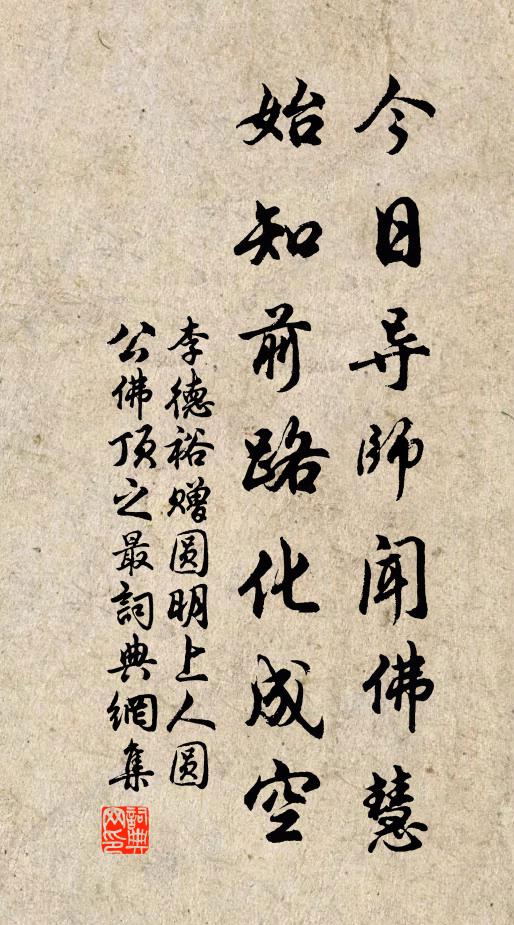 今日导师闻佛慧
始知前路化成空
李德裕赠圆明上人圆
公佛顶之最詞典網集
詞典网印